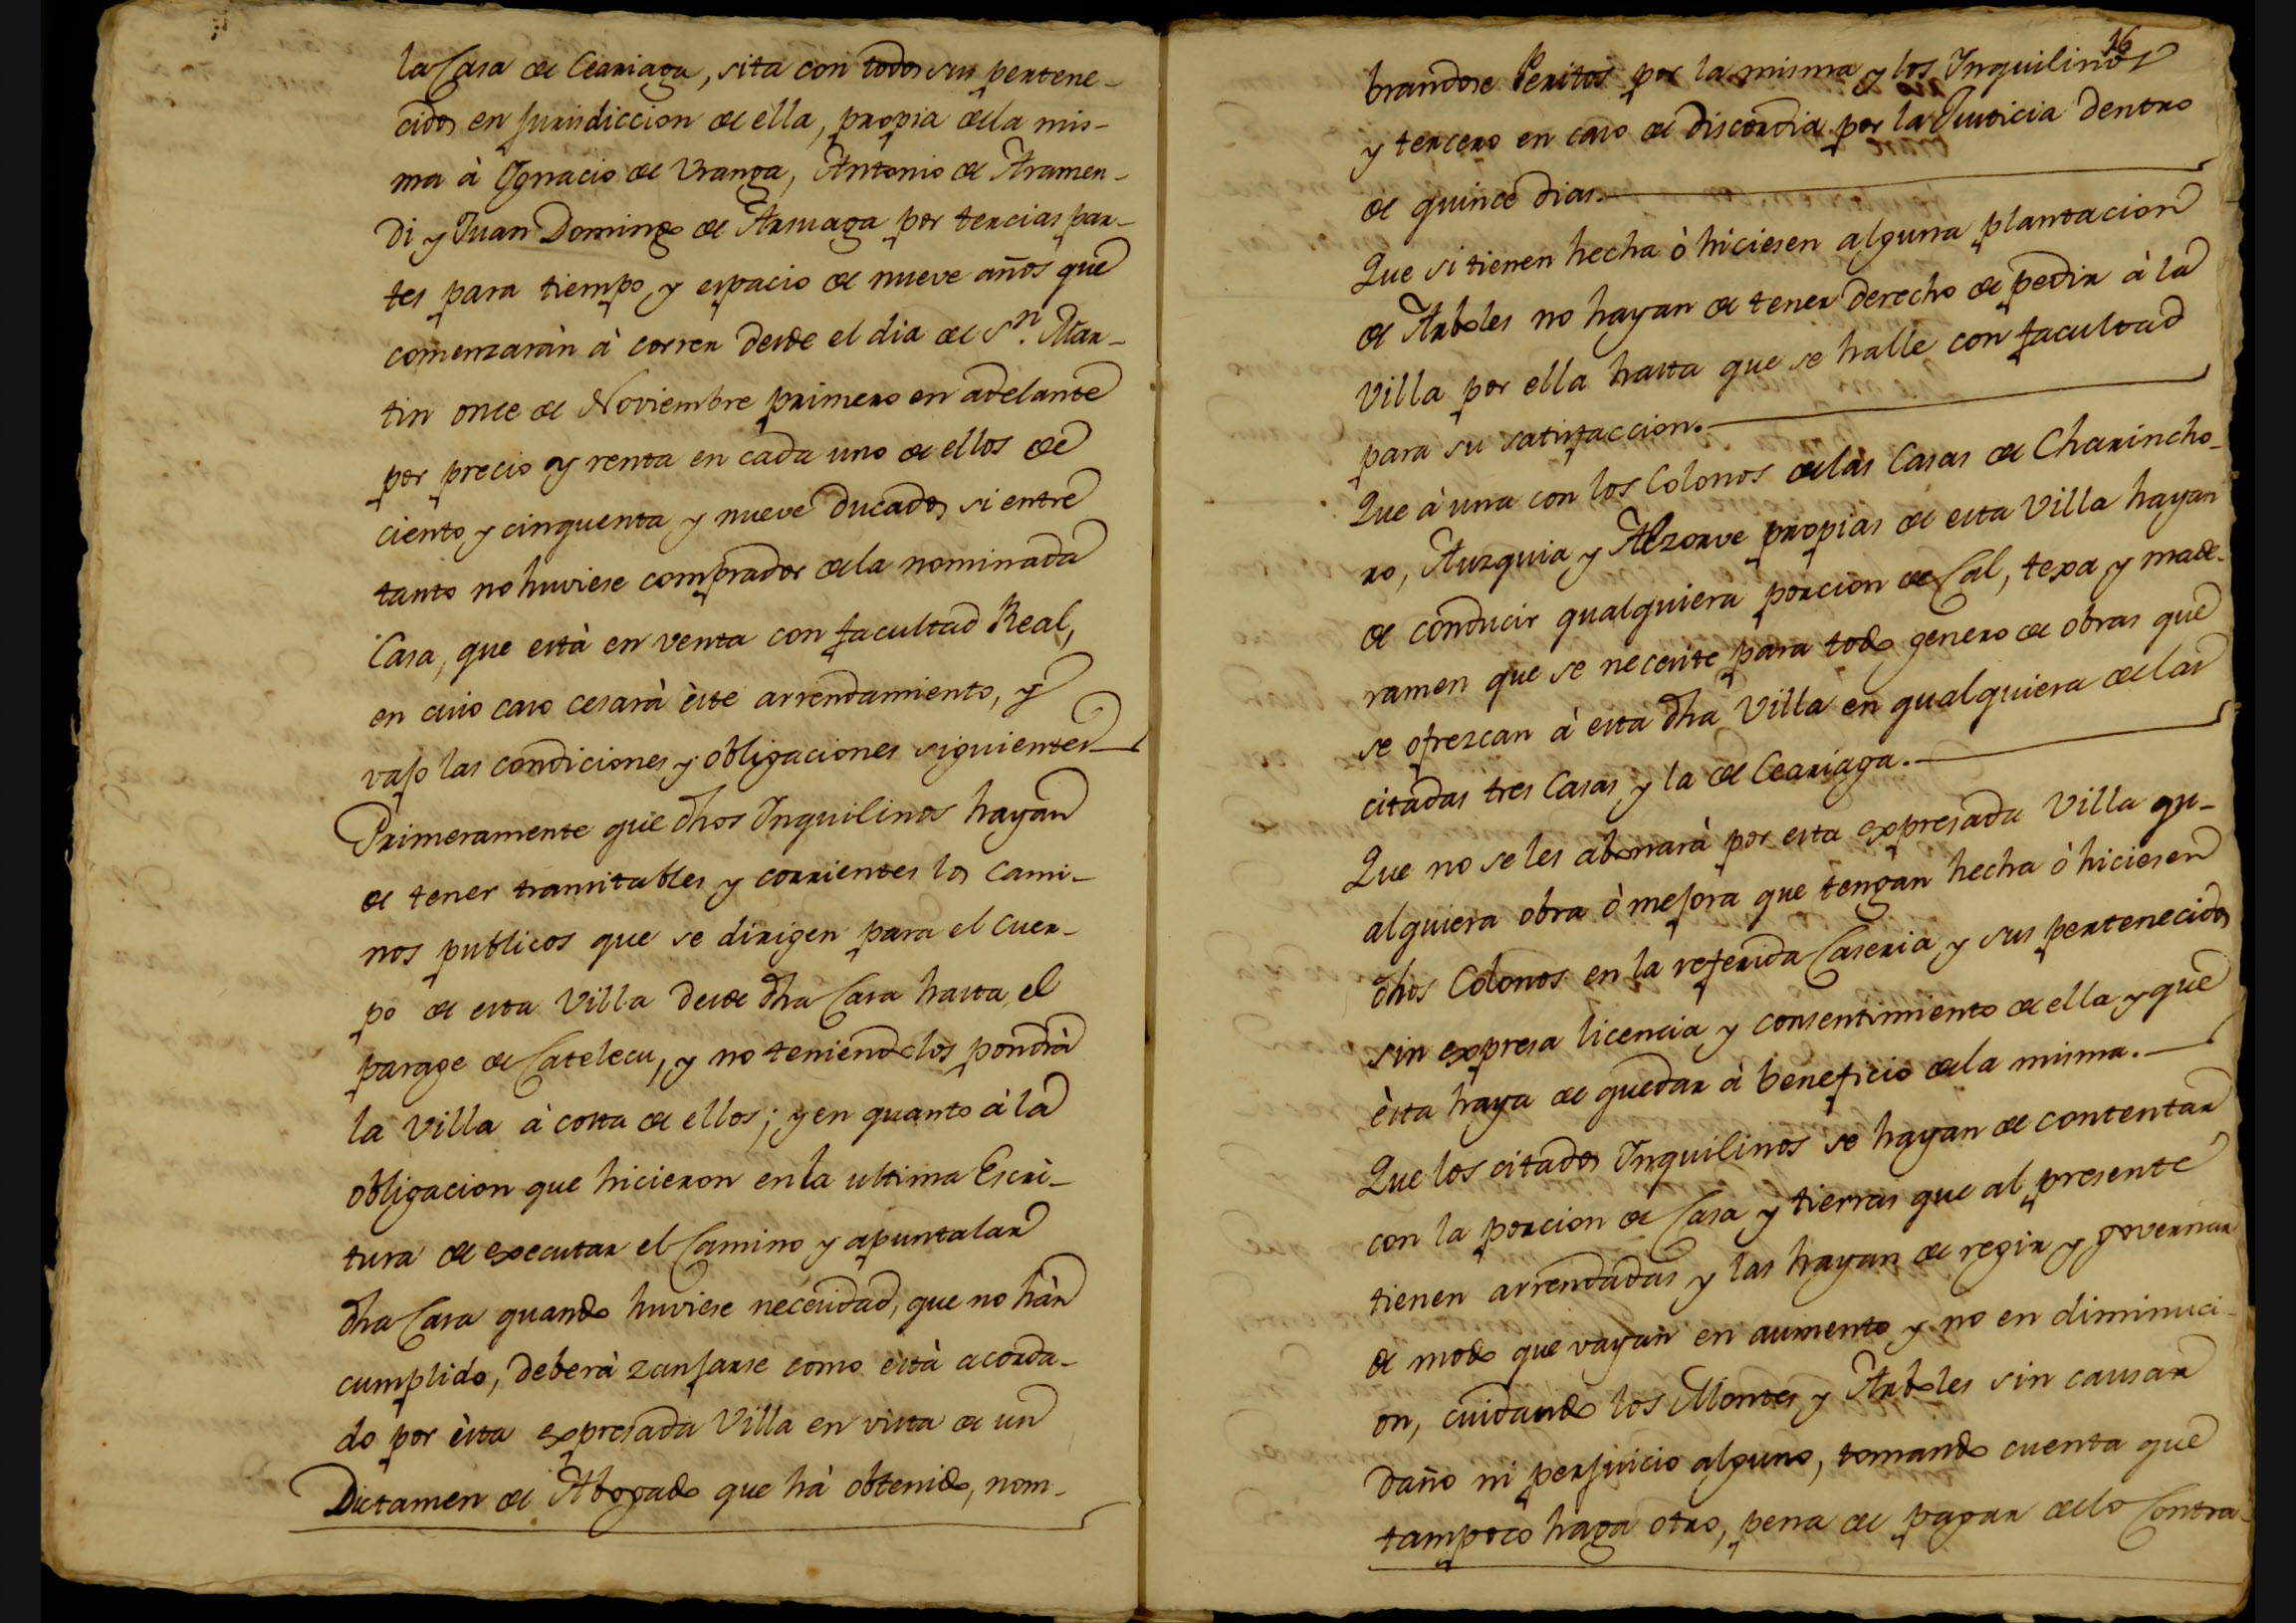 la Casa de Ceariaga, sita con todos sus pertene-
cidos en jurisdiccion de ella, propia de la mis-
ma à Ygnacio de Vranga, Antonio de Aramen-
di y Juan Domingo de Arsuaga por tercias par-
tes para tiempo y espacio de nueve años que
comenzaràn à correr desde el dia de Sn. Mar-
tin once de Noviembre primero en adelante
por precio y renta en cada uno de ellos de
ciento y cinquenta y nueve ducados si entre
tanto no huviese comprador de la nominada
Casa, que està en venta con facultad Real,
en cuio caso cesarà èste arrendamiento, y
vajo las condiciones y obligaciones siguientes
Primeramente que dhos Ynquilinos hayan
de tener transitables y corrientes los Cami-
nos publicos que se dirigen para el Cuer-
po de esta Villa desde dha Casa hasta el
parage de Catelecu, y no teniendolos pondrà
la Villa à costa de ellos; y en quanto à la
obligacion que hicieron en la ultima Escri-
tura de executar el Camino y apuntalar
dha Casa quando huviese necesidad, que no hàn
cumplido, deberà zanjarse como està acorda-
do por èsta expresada Villa en vista de un
Dictamen de Abogado que hà obtenido, nom-
16
brandose Peritos por la misma y los Ynquilinos
y tercero en caso de discordia por la Justicia dentro
de quince dias.
Que si tienen hecha ò hiciesen alguna plantacion
de Arboles no hayan de tener derecho de pedir à la
Villa por ella hasta que se halle con facultad
para su satisfaccion.
Que à una con los Colonos de las Casas de Charincho-
ro, Auzquia y Alzorve propias de esta Villa hayan
de conducir qualquiera porcion de Cal, texa y made-
ramen que se necesite para todo genero de obras que
se ofrezcan à esta dha Villa en qualquiera de las
citadas tres Casas y la de Ceariaga.
Que no se les abonarà por esta expresada Villa qu-
alquiera obra ò mejora que tengan hecha ò hiciesen
dhos Colonos en la referida Caseria y sus pertenecidos
sin expresa licencia y consentimiento de ella y que
èsta haya de quedar à beneficio de la misma.
Que los citados Ynquilinos se hayan de contentar
con la porcion de Casa y tierras que al presente
tienen arrendadas y las hayan de regir y governar
de modo que vayan en aumento y no en diminuci-
on, cuidando los Montes y Arboles sin causar
daño ni perjuicio alguno, tomando cuenta que
tampoco haga otro, pena de pagar de lo Contra-